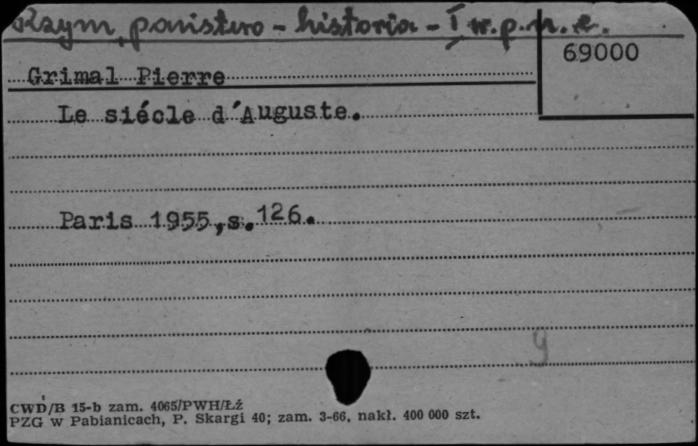 Rzym, państwo - historia - I w.p.n.e.
69000
Grimal Pierre
Le siécle d'Auguste.
Paris 1955,s.126.
9
CWD/B 15-b zam. 4065/PWH/Łź
PZG w Pabianicach, P. Skargi 40; zam. 3-66, nakł. 400 000 szt.